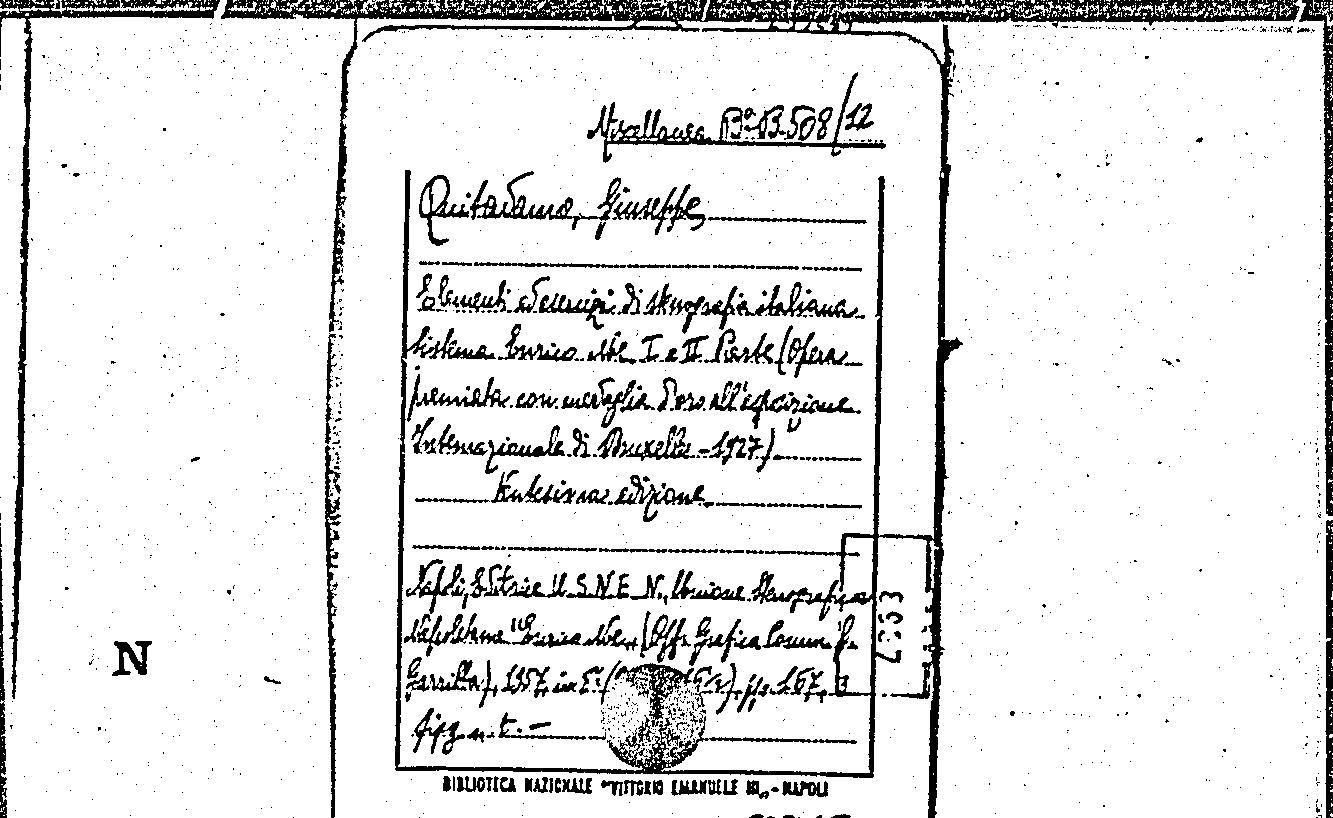 Miscellanea Bª B. 508/12
Quitadamo, Giuseppe
Elementi ed esercizi di stenografia italiana
sistema Enrico Noe I e II Parte (Opera
premiata con medaglia d'oro all'esposizione
Internazionale di Bruxelles - 1927)
Ventesima edizione
Napoli, Editrice U. S. N. E. N., Unione Stenografica
Napoletana "Enrico Noe", (Off. Grafica Comm.
), 1957, in 8º pp. 167, 3
fig. n. t. —
N
BIBLIOTECA NAZIONALE "VITTORIO EMANUELE III" - NAPOLI